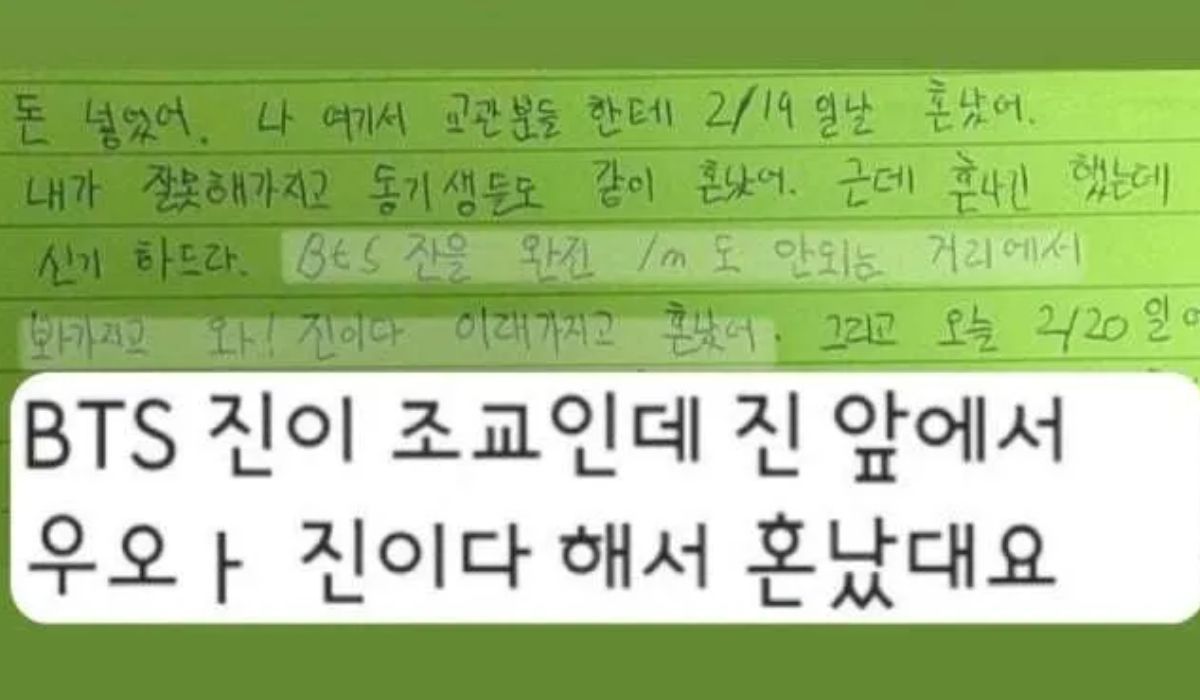 돈 넣었어. 나 여기서 교관분들 한테 2/19 일날 혼났어.
내가 잘못해가지고 동기생들도 같이 혼났어. 근데 혼나긴 했는데
신기 하드라. BtS 진을 완전 1m도 안되는 거리에서
봐가지고 와! 진이다 이래가지고 혼났어. 그리고 오늘 2/20일에
BTS 진이 조교인데 진 앞에서
우오ㅏ 진이다 해서 혼났대요